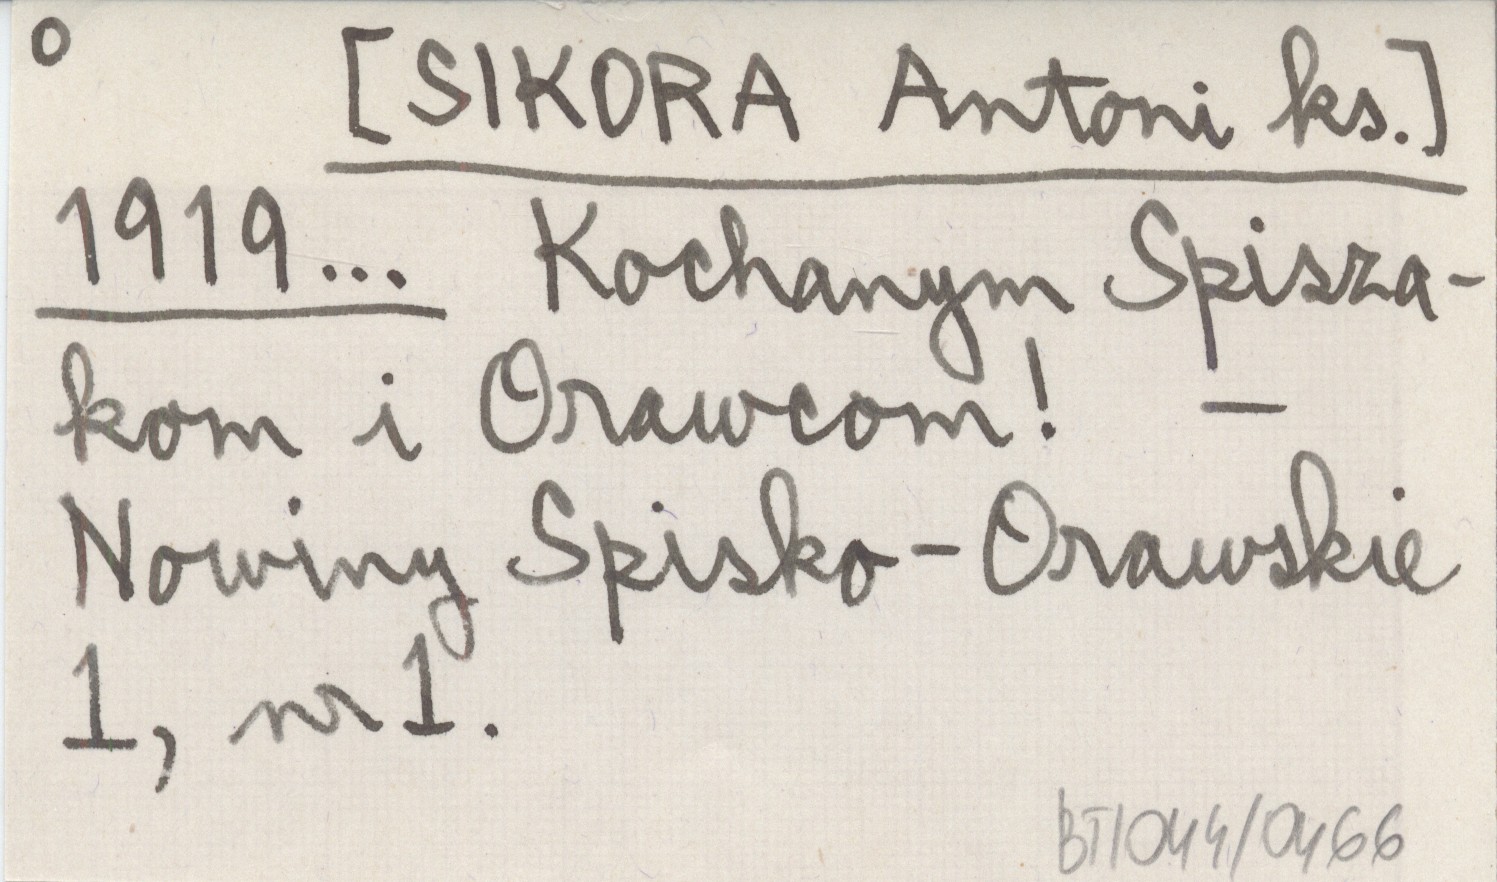 o [SIKORA Antoni ks.]
1919... Kochanym Spisza-
kom i Orawcom! —
Nowiny Spisko-Orawskie
1, nr 1.
BT/044/0466